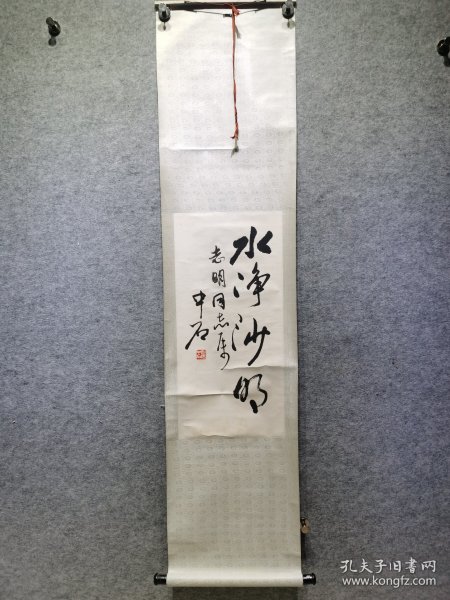 水净沙明
志明同志属
中石
孔夫子旧书网
www.kongfz.com